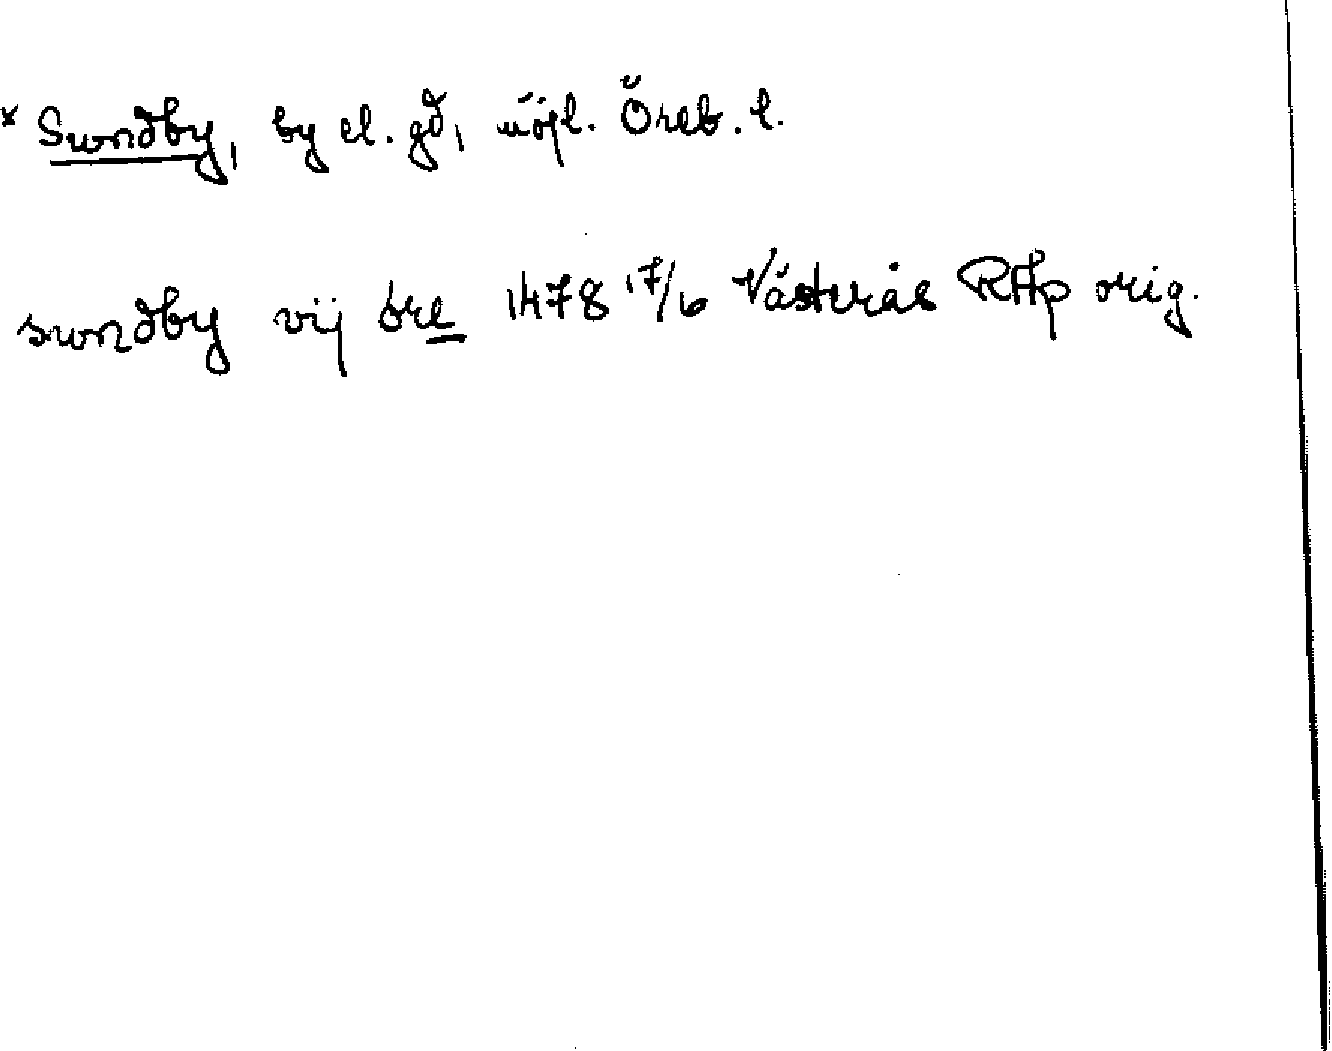 * Sundby, by el. gd, möjl. Öreb. l.
sundby vij öre 1478 17/6 Västerås RAp orig.